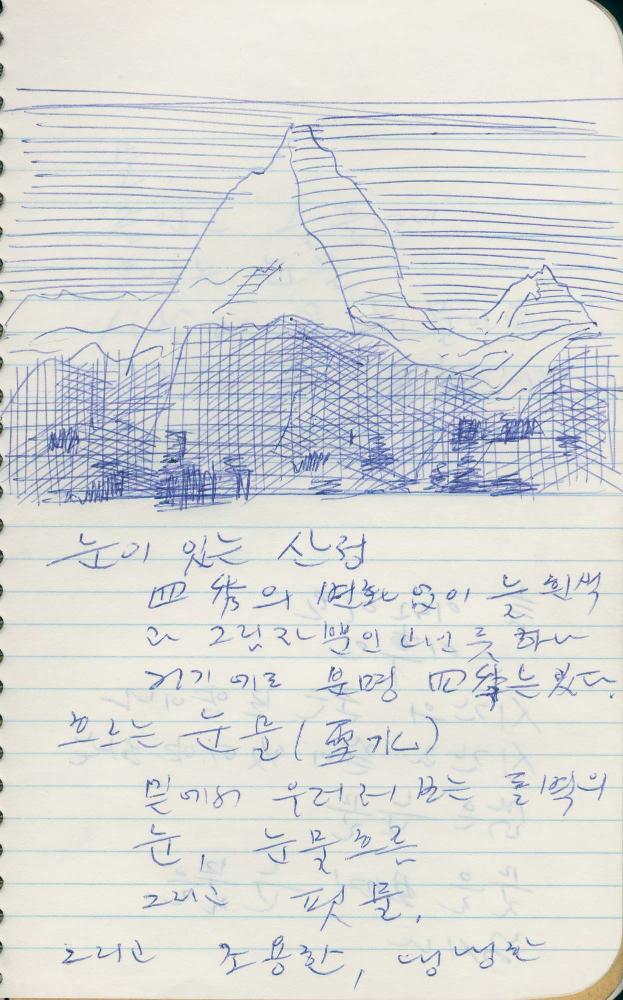 눈이 있는 산령
四季의 변화 없이 늘 흰색
과 그림자뿐인 듯 하나
거기에도 분명 四季는 있다.
흐르는 눈물(雪水)
밑에서 우러러 보는 돌벽의
눈, 눈물흐름
그리고 핏물,
그리고 조용한, 냉냉한